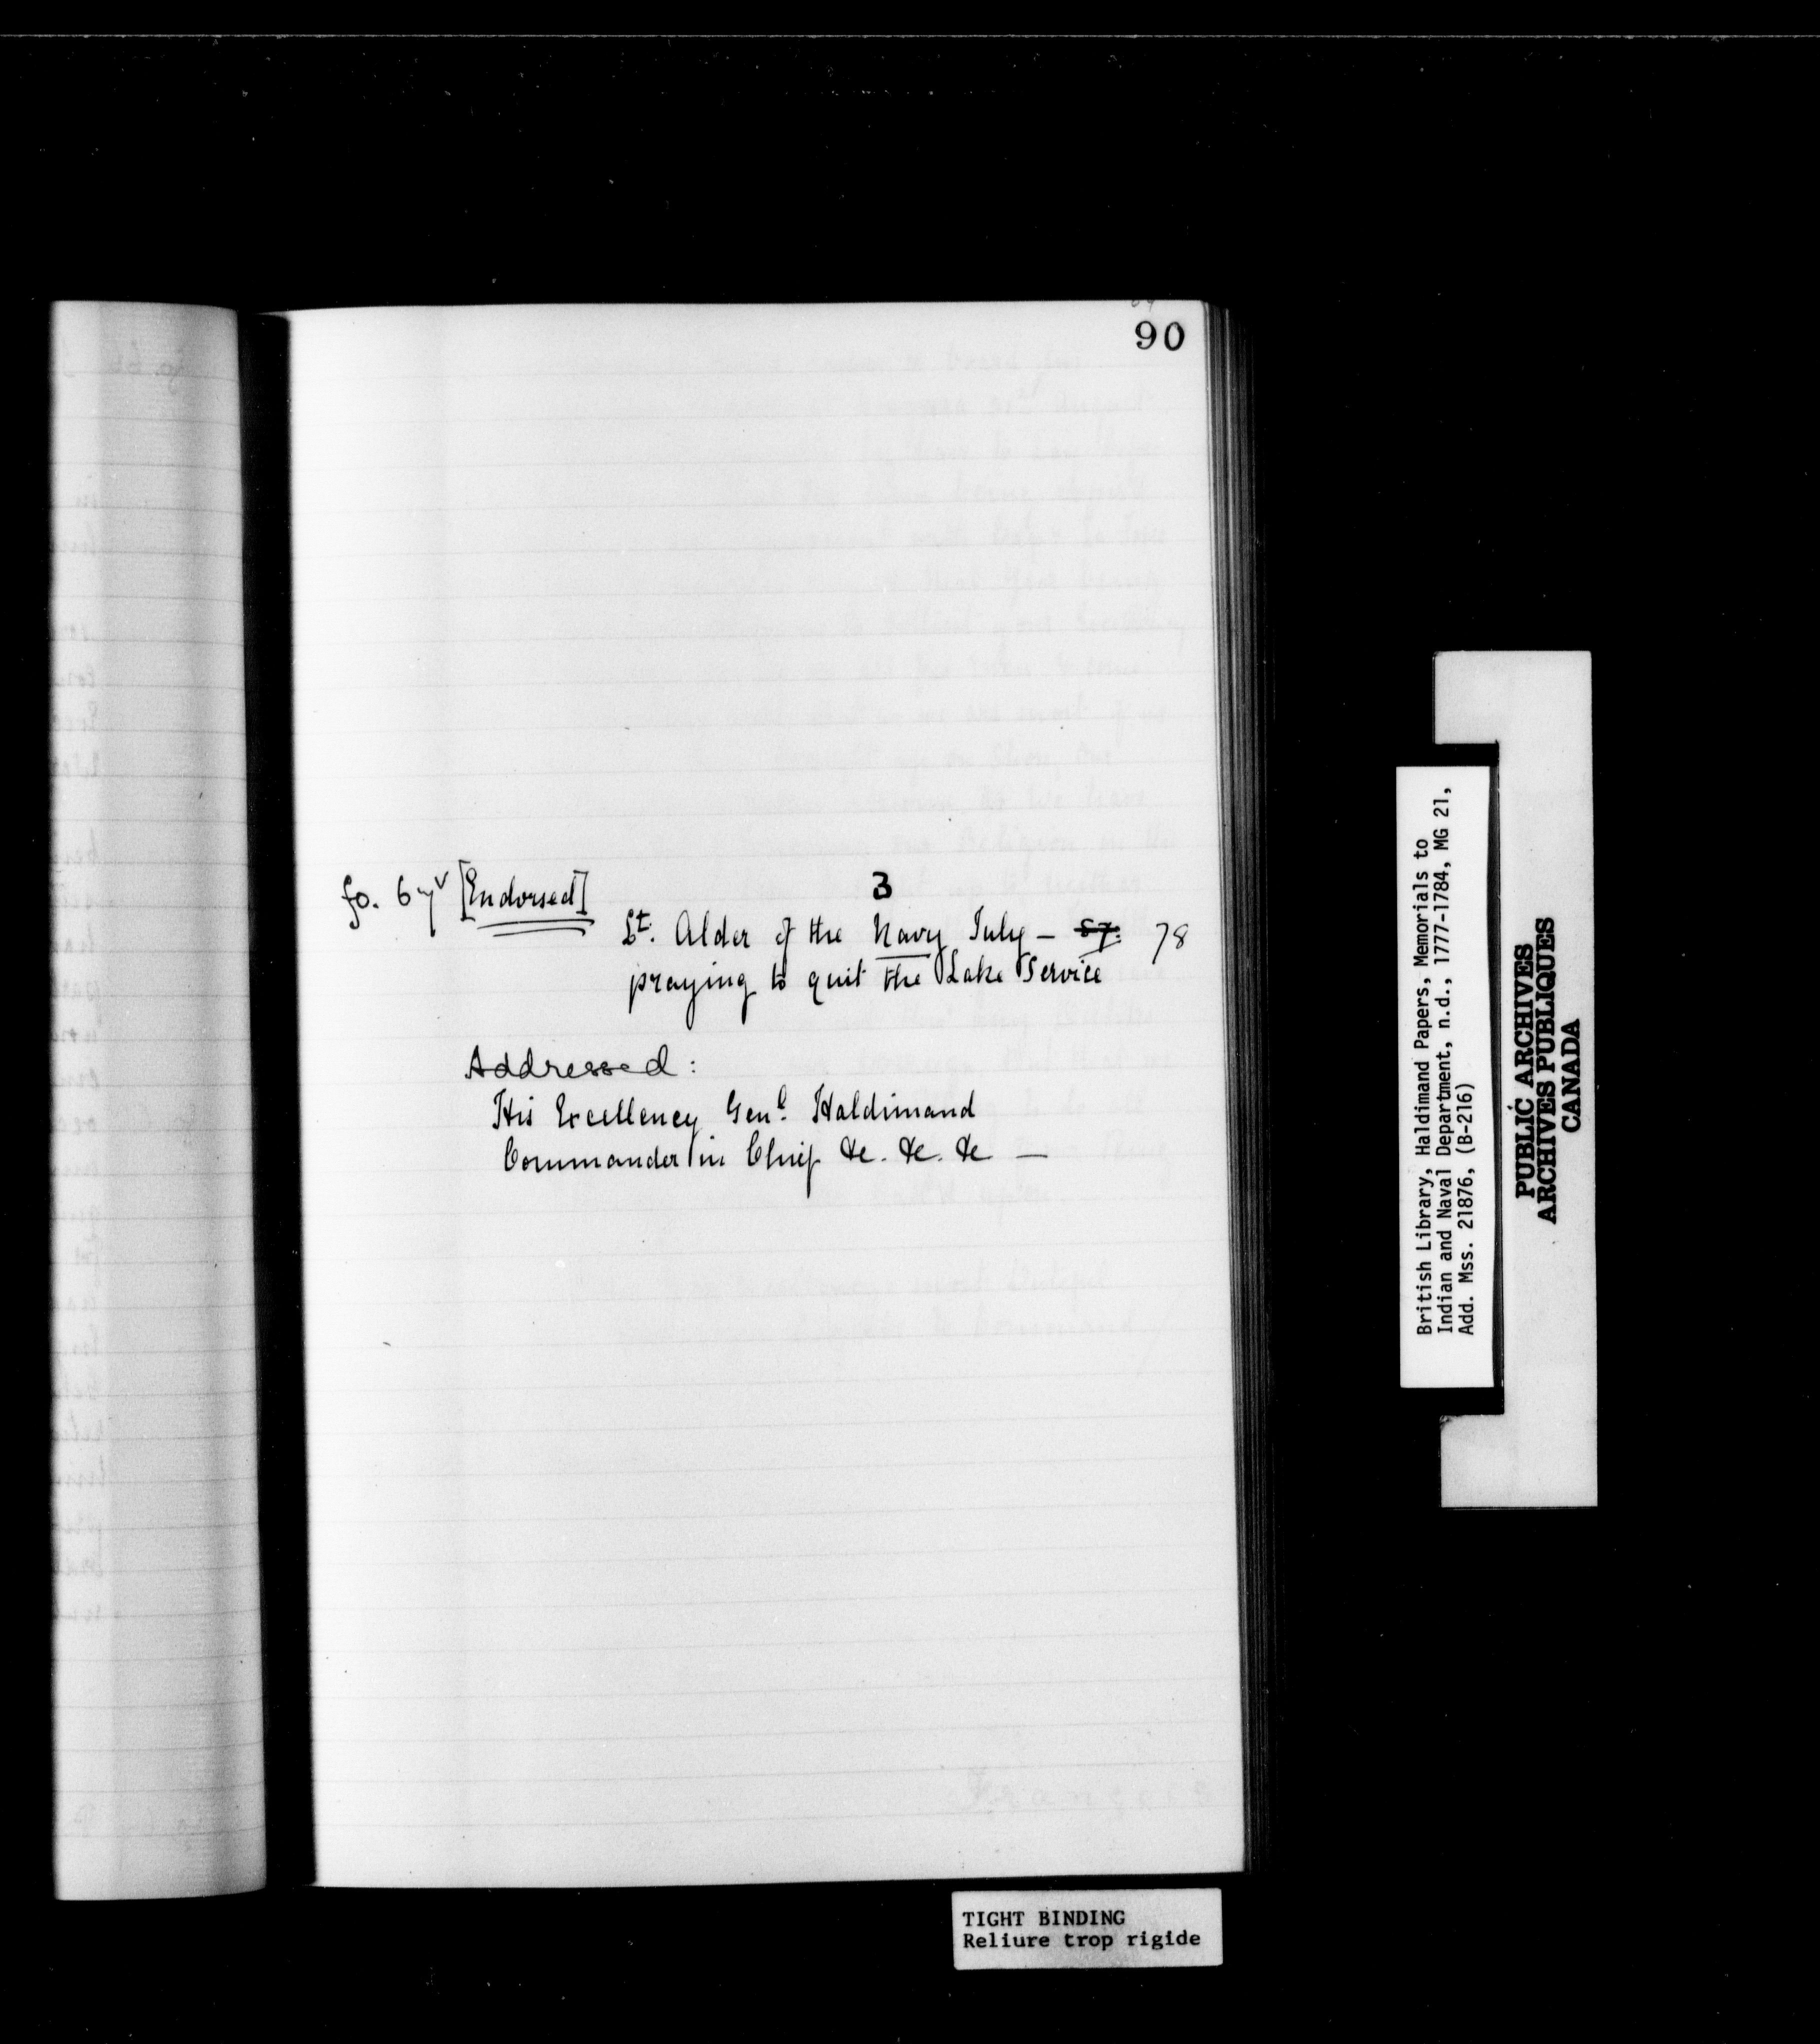 90
fo. 67v [Endorsed]
3
Lt. Alder of the Navy July — 57: 78
praying to quit the Lake Service
Addressed:
His Excellency Genl. Haldimand
Commander in Chief &c. &c. &c —
British Library, Haldimand Papers, Memorials to
Indian and Naval Department, n.d., 1777-1784, MG 21,
Add. Mss. 21876, (B-216)
PUBLIC ARCHIVES
ARCHIVES PUBLIQUES
CANADA
TIGHT BINDING
Reliure trop rigide